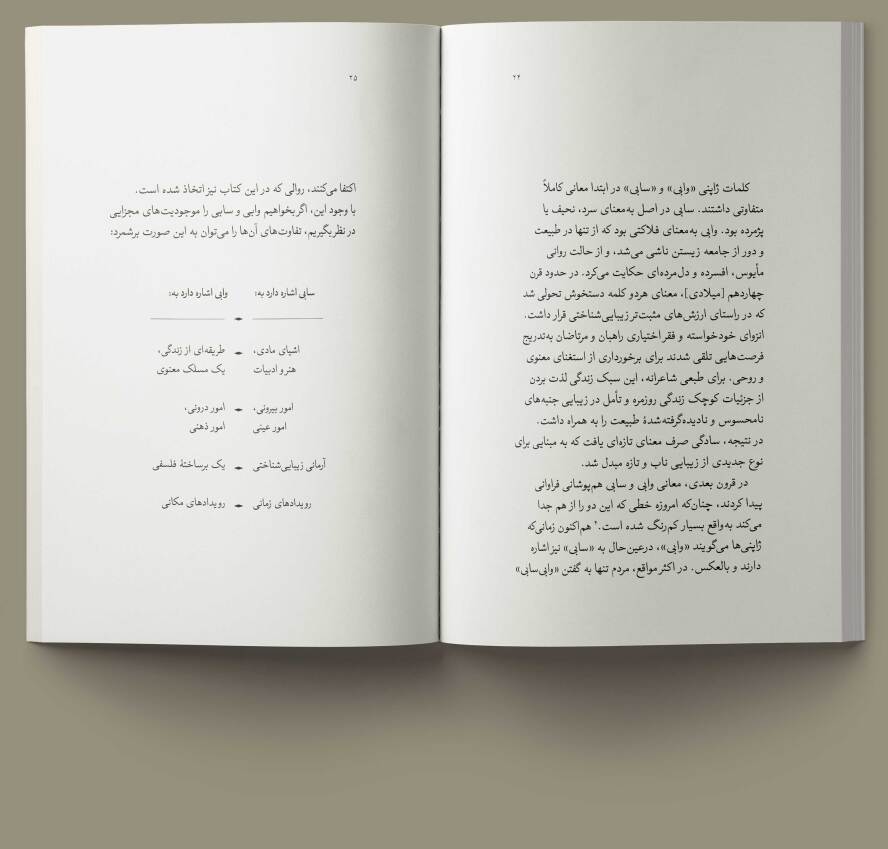 ۲۴
کلمات ژاپنی «وابی» و «سابی» در ابتدا معانی کاملاً
متفاوتی داشتند. سابی در اصل به‌معنای سرد، نحیف یا
پژمرده بود. وابی به‌معنای فلاکتی بود که از تنها در طبیعت
و دور از جامعه زیستن ناشی می‌شد، و از حالت روانی
مأیوس، افسرده و دل‌مرده‌ای حکایت می‌کرد. در حدود قرن
چهاردهم [میلادی]، معنای هردو کلمه دستخوش تحولی شد
که در راستای ارزش‌های مثبت‌تر زیبایی‌شناختی قرار داشت.
انزوای خودخواسته و فقر اختیاری راهبان و مرتاضان به‌تدریج
فرصت‌هایی تلقی شدند برای برخورداری از استغنای معنوی
و روحی. برای طبعی شاعرانه، این سبک زندگی لذت بردن
از جزئیات کوچک زندگی روزمره و تأمل در زیبایی جنبه‌های
نامحسوس و نادیده‌گرفته‌شدهٔ طبیعت را به همراه داشت.
در نتیجه، سادگی صرف معنای تازه‌ای یافت که به مبنایی برای
نوع جدیدی از زیبایی ناب و تازه مبدل شد.
در قرون بعدی، معانی وابی و سابی هم‌پوشانی فراوانی
پیدا کردند، چنان‌که امروزه خطی که این دو را از هم جدا
می‌کند به‌واقع بسیار کم‌رنگ شده است. هم‌اکنون زمانی‌که
ژاپنی‌ها می‌گویند «وابی»، درعین‌حال به «سابی» نیز اشاره
دارند و بالعکس. در اکثر مواقع، مردم تنها به گفتن «وابی‌سابی»
۲۵
اکتفا می‌کنند، روالی که در این کتاب نیز اتخاذ شده است.
با وجود این، اگر بخواهیم وابی و سابی را موجودیت‌های مجزایی
در نظر بگیریم، تفاوت‌های آن‌ها را می‌توان به این صورت برشمرد:
سابی اشاره دارد به: وابی اشاره دارد به:
اشیای مادی، طریقه‌ای از زندگی،
هنر و ادبیات یک مسلک معنوی
امور بیرونی، امور درونی،
امور عینی امور ذهنی
آرمانی زیبایی‌شناختی یک برساختهٔ فلسفی
رویدادهای زمانی رویدادهای مکانی